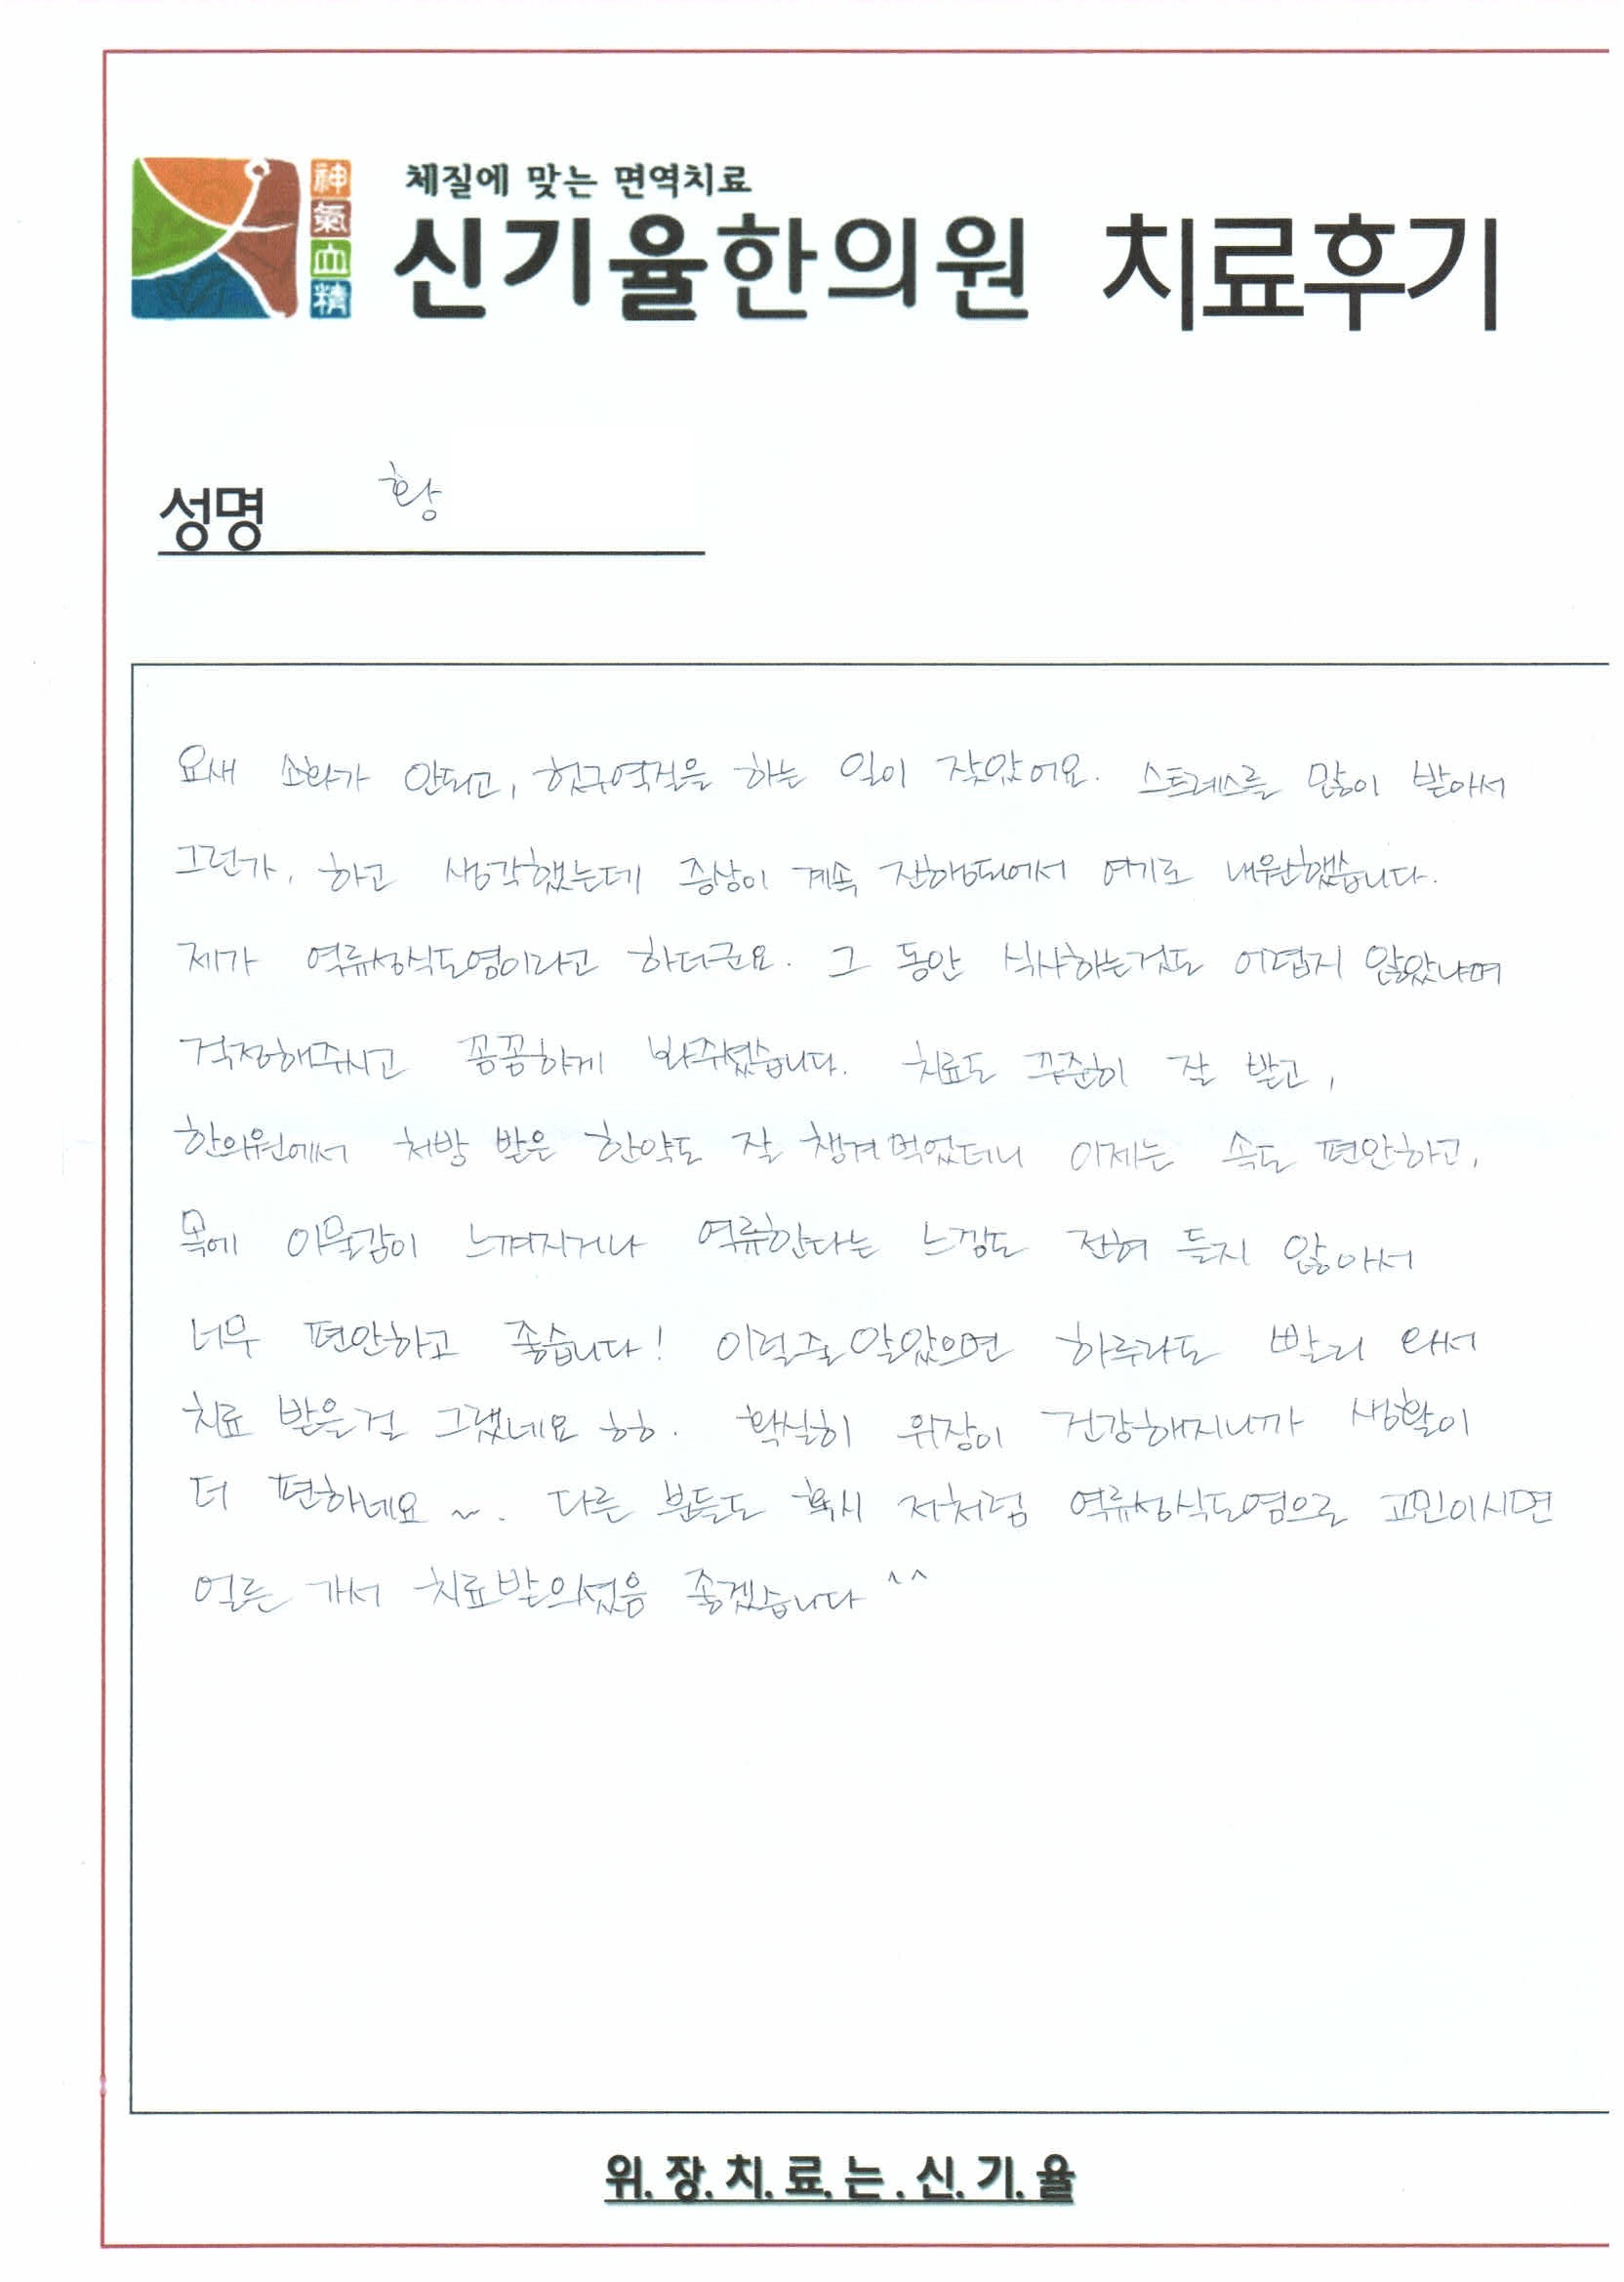 체질에 맞는 면역치료
神
氣
血
精
신기율한의원 치료후기
성명 황
요새 소화가 안되고, 헛구역질을 하는 일이 잦았어요. 스트레스를 많이 받아서
그런가, 하고 생각했는데 증상이 계속 진행되어서 여기로 내원했습니다.
제가 역류성식도염이라고 하더군요. 그 동안 식사하는것도 어렵지 않았냐며
걱정해주시고 꼼꼼하게 봐주셨습니다. 치료도 꾸준히 잘 받고,
한의원에서 처방 받은 한약도 잘 챙겨먹었더니 이제는 속도 편안하고,
목에 이물감이 느껴지거나 역류한다는 느낌도 전혀 들지 않아서
너무 편안하고 좋습니다! 이럴줄알았으면 하루라도 빨리 와서
치료 받을걸 그랬네요 ㅎㅎ. 확실히 위장이 건강해지니까 생활이
더 편하네요~. 다른 분들도 혹시 저처럼 역류성식도염으로 고민이시면
얼른 가서 치료받의셨음 좋겠습니다^^
위.장.치.료.는.신.기.율